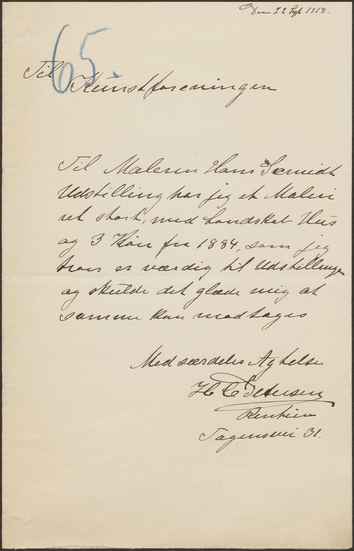 Den 22 Sept 1913.
65.
Til Kunstforeningen
Til Maleren Hans Smidt
Udstilling har jeg et Maleri
ret stort, med Landskab Hus
og 3 Køer fra 1884, som jeg
tror er værdig til Udstillingen
og skulde det glæde mig at
samme kan modtages
Med særdeles Agtelse
H C Petersen
Rentier
Tagensvei 31.